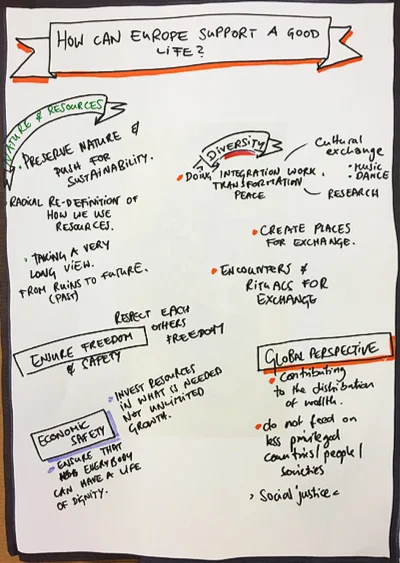 HOW CAN EUROPE SUPPORT A GOOD
LIFE?
NATURE & RESOURCES
• PRESERVE NATURE &
PUSH FOR
SUSTAINABILITY.
RADICAL RE-DEFINITION OF
HOW WE USE
RESOURCES.
• TAKING A VERY
LONG VIEW.
FROM RUINS TO FUTURE.
(PAST)
DIVERSITY
• DOING INTEGRATION WORK.
TRANSFORMATION
PEACE
Cultural
exchange
• MUSIC
• DANCE
RESEARCH
• CREATE PLACES
FOR EXCHANGE.
• ENCOUNTERS &
RITUALS FOR
EXCHANGE
ENURE FREEDOM
& SAFETY
RESPECT EACH
OTHERS
FREEDOM
ECONOMIC
SAFETY
• INVEST RESOURCES
IN WHAT IS NEEDED
NOT UNLIMITED
GROWTH.
• ENSURE THAT
EVERYBODY
CAN HAVE A LIFE
OF DIGNITY.
GLOBAL PERSPECTIVE
• Contributing
to the distribution
of wealth.
• do not feed on
less privileged
countries/people/
societies
› Social justice